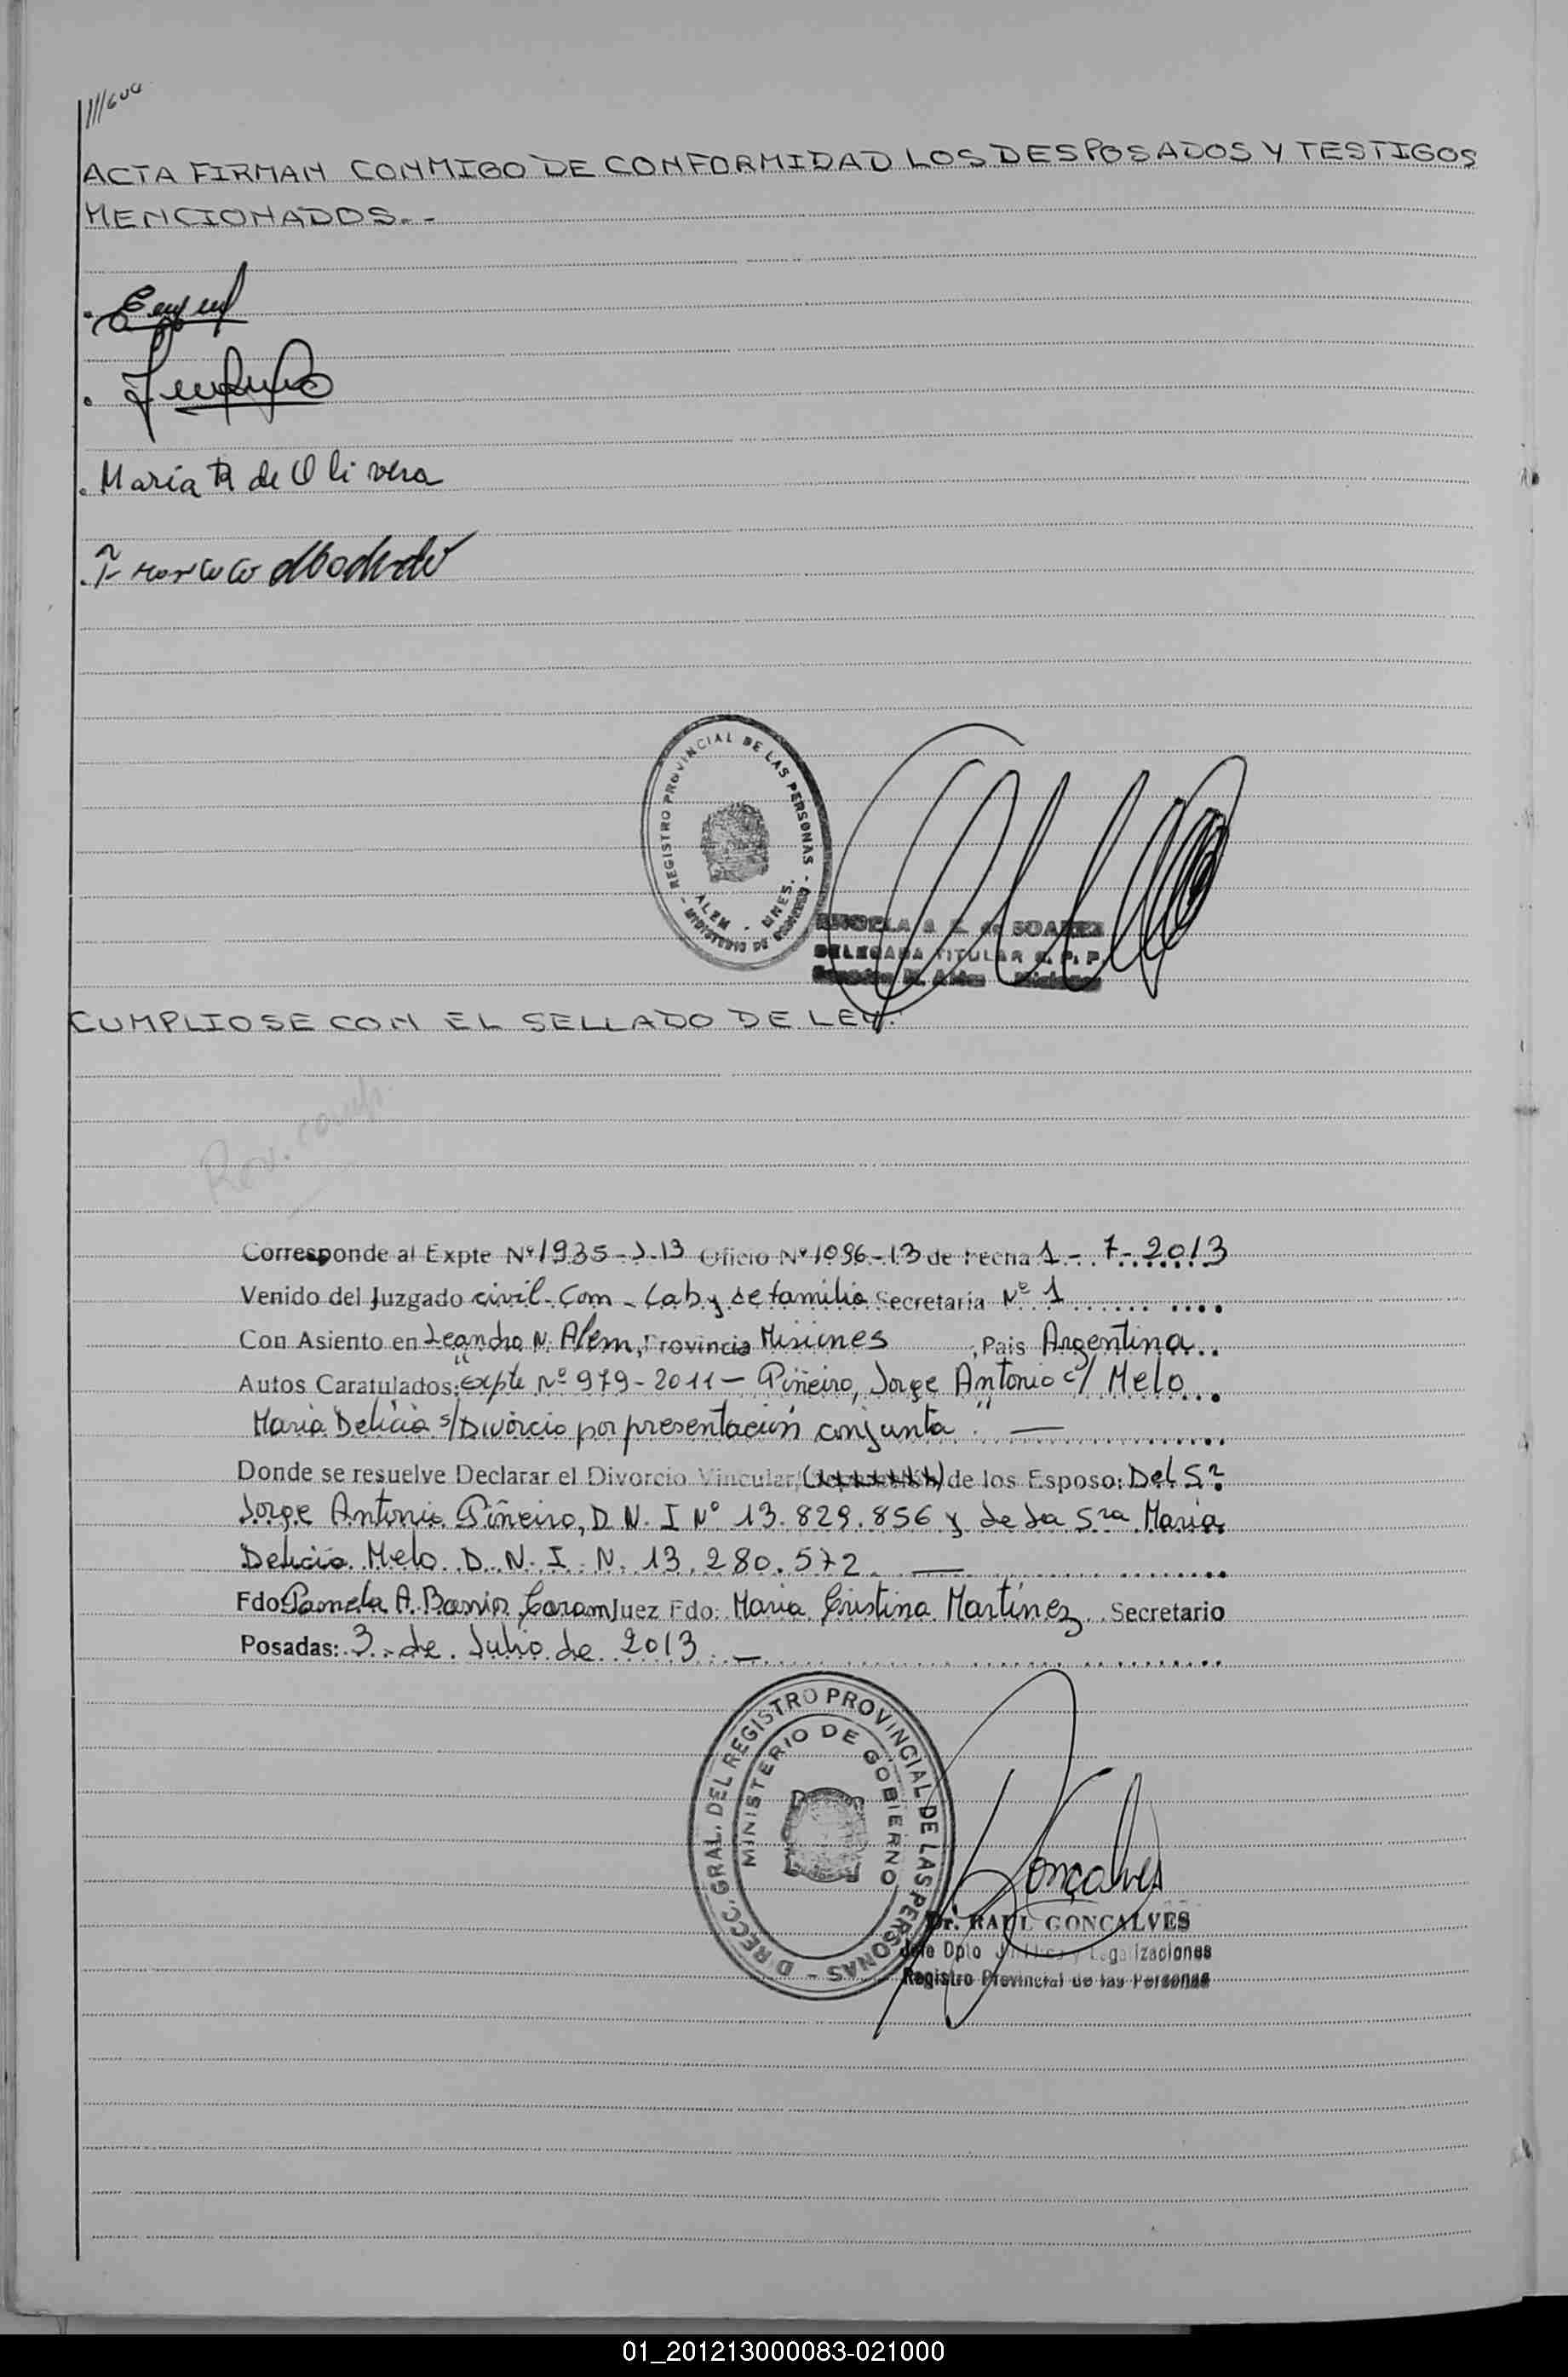 ACTA FIRMAN CONMIGO DE CONFORMIDAD LOS DESPOSADOS Y TESTIGOS
MENCIONADOS.-
Maria R de Olivera
REGISTRO PROVINCIAL DE LAS PERSONAS - MINISTERIO DE GOBIERNO -
ALEM - MNES.
DE SOAREZ
DELEGADA TITULAR R. P. P.
CUMPLIOSE CON EL SELLADO DE LEY.
Rev. comp.
Corresponde al Expte Nº 1935-J-13 Oficio Nº 1096-13 de Fecha 1-7-2013
Venido del Juzgado civil-Com-Lab y de familia Secretaria Nº 1
Con Asiento en Leandro N. Alem, Provincia Misiones, Pais Argentina
Autos Caratulados: "Expte Nº 979-2011 - Piñeiro, Jorge Antonio c/ Melo
Maria Delicia s/Divorcio por presentación conjunta".
Donde se resuelve Declarar el Divorcio Vincular/ de los Esposo: Del Sr
Jorge Antonio Piñeiro, D.N.I Nº 13.829.856 y de la Sra Maria
Delicia Melo D.N.I.N. 13.280.572
Fdo: Pamela A. Barrios Caram Juez Fdo: Maria Cristina Martínez Secretario
Posadas: 3 de Julio de 2013
DIRECC. GRAL. DEL REGISTRO PROVINCIAL DE LAS PERSONAS -
MINISTERIO DE GOBIERNO
Gonçalves
Dr. RAUL GONCALVES
Jefe Dpto Jurídico y Legalizaciones
Registro Provincial de las Personas
01_201213000083-021000